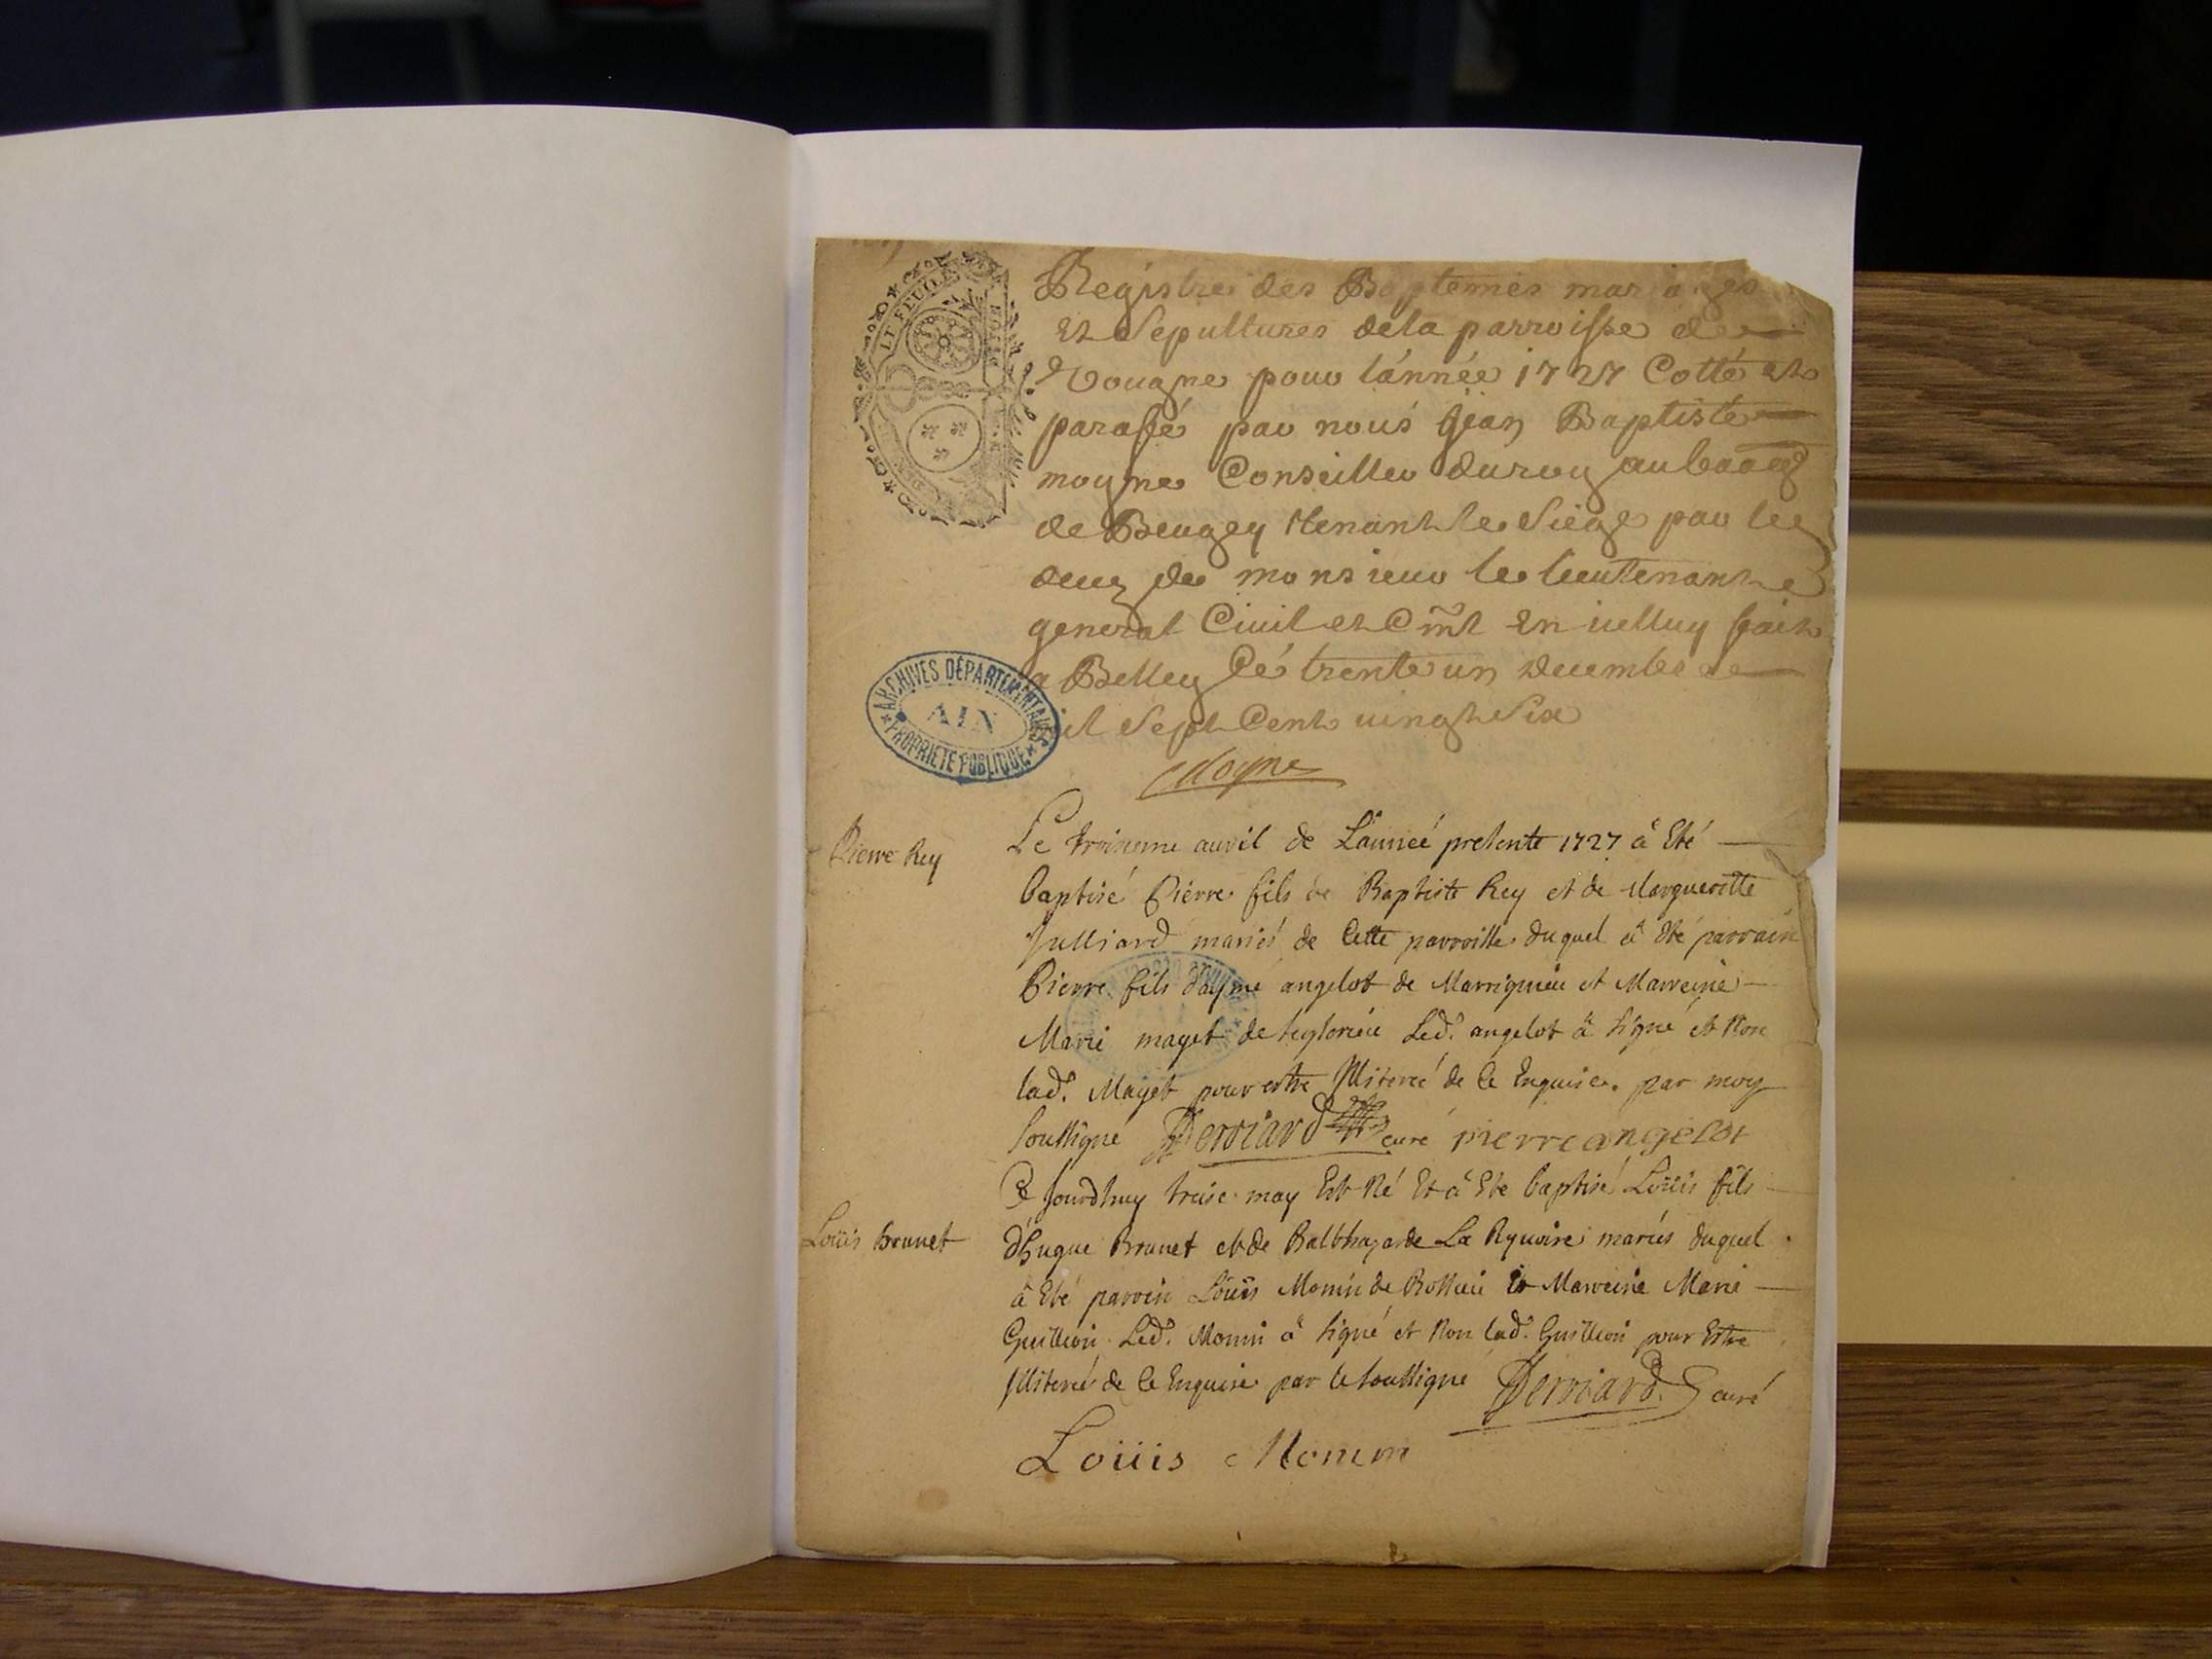 Registre des Baptemes mariages
et Sepultures dela parroisse de
Vougne pour lánnée 1727 Cotté et
paraffé par nous Jean Baptiste
moyne Conseiller du roy au
de Beugey tenant le Siege par
de monsieur le lieutenant
general Civil et Crîml en icelluy fait
a Belley Cé trente un decembre
mil Sept Cent vingt Six
Moyne
LE FEUILLE
ARCHIVES DÉPARTEMENTALES
AIN
PROPRIÉTÉ PUBLIQUE
Pierre Rey
Le troisieme auvril de L'anneé presente 1727 â Eté
baptisé Pierre fils de Baptiste Rey et de Margueritte
Julliard mariés de Cette parroisse duquel â Eté parrain
Pierre fils d'aymé angelot de Marrignieu et Marreine
Marie mayet de Led. angelot â signé et Non
lad. Mayet pour estre Illiterée de Ce Enquise. par moy
soussigné Perriard curé pierre angelot
Louis brunet
Ce Jourdhuy treise may Est Né Et â Eté baptisé Loüis fils
d'hugue Brunet et de Balthazarde La Ryvoire mariés duquel
â Eté parrein Loüis Monin de Et Marreine Marie
Guillion Led. Monin â signé et Non lad. Guillion pour Estre
Illiterée de Ce Enquise par le soussigné Perriard curé
Loüis Monin